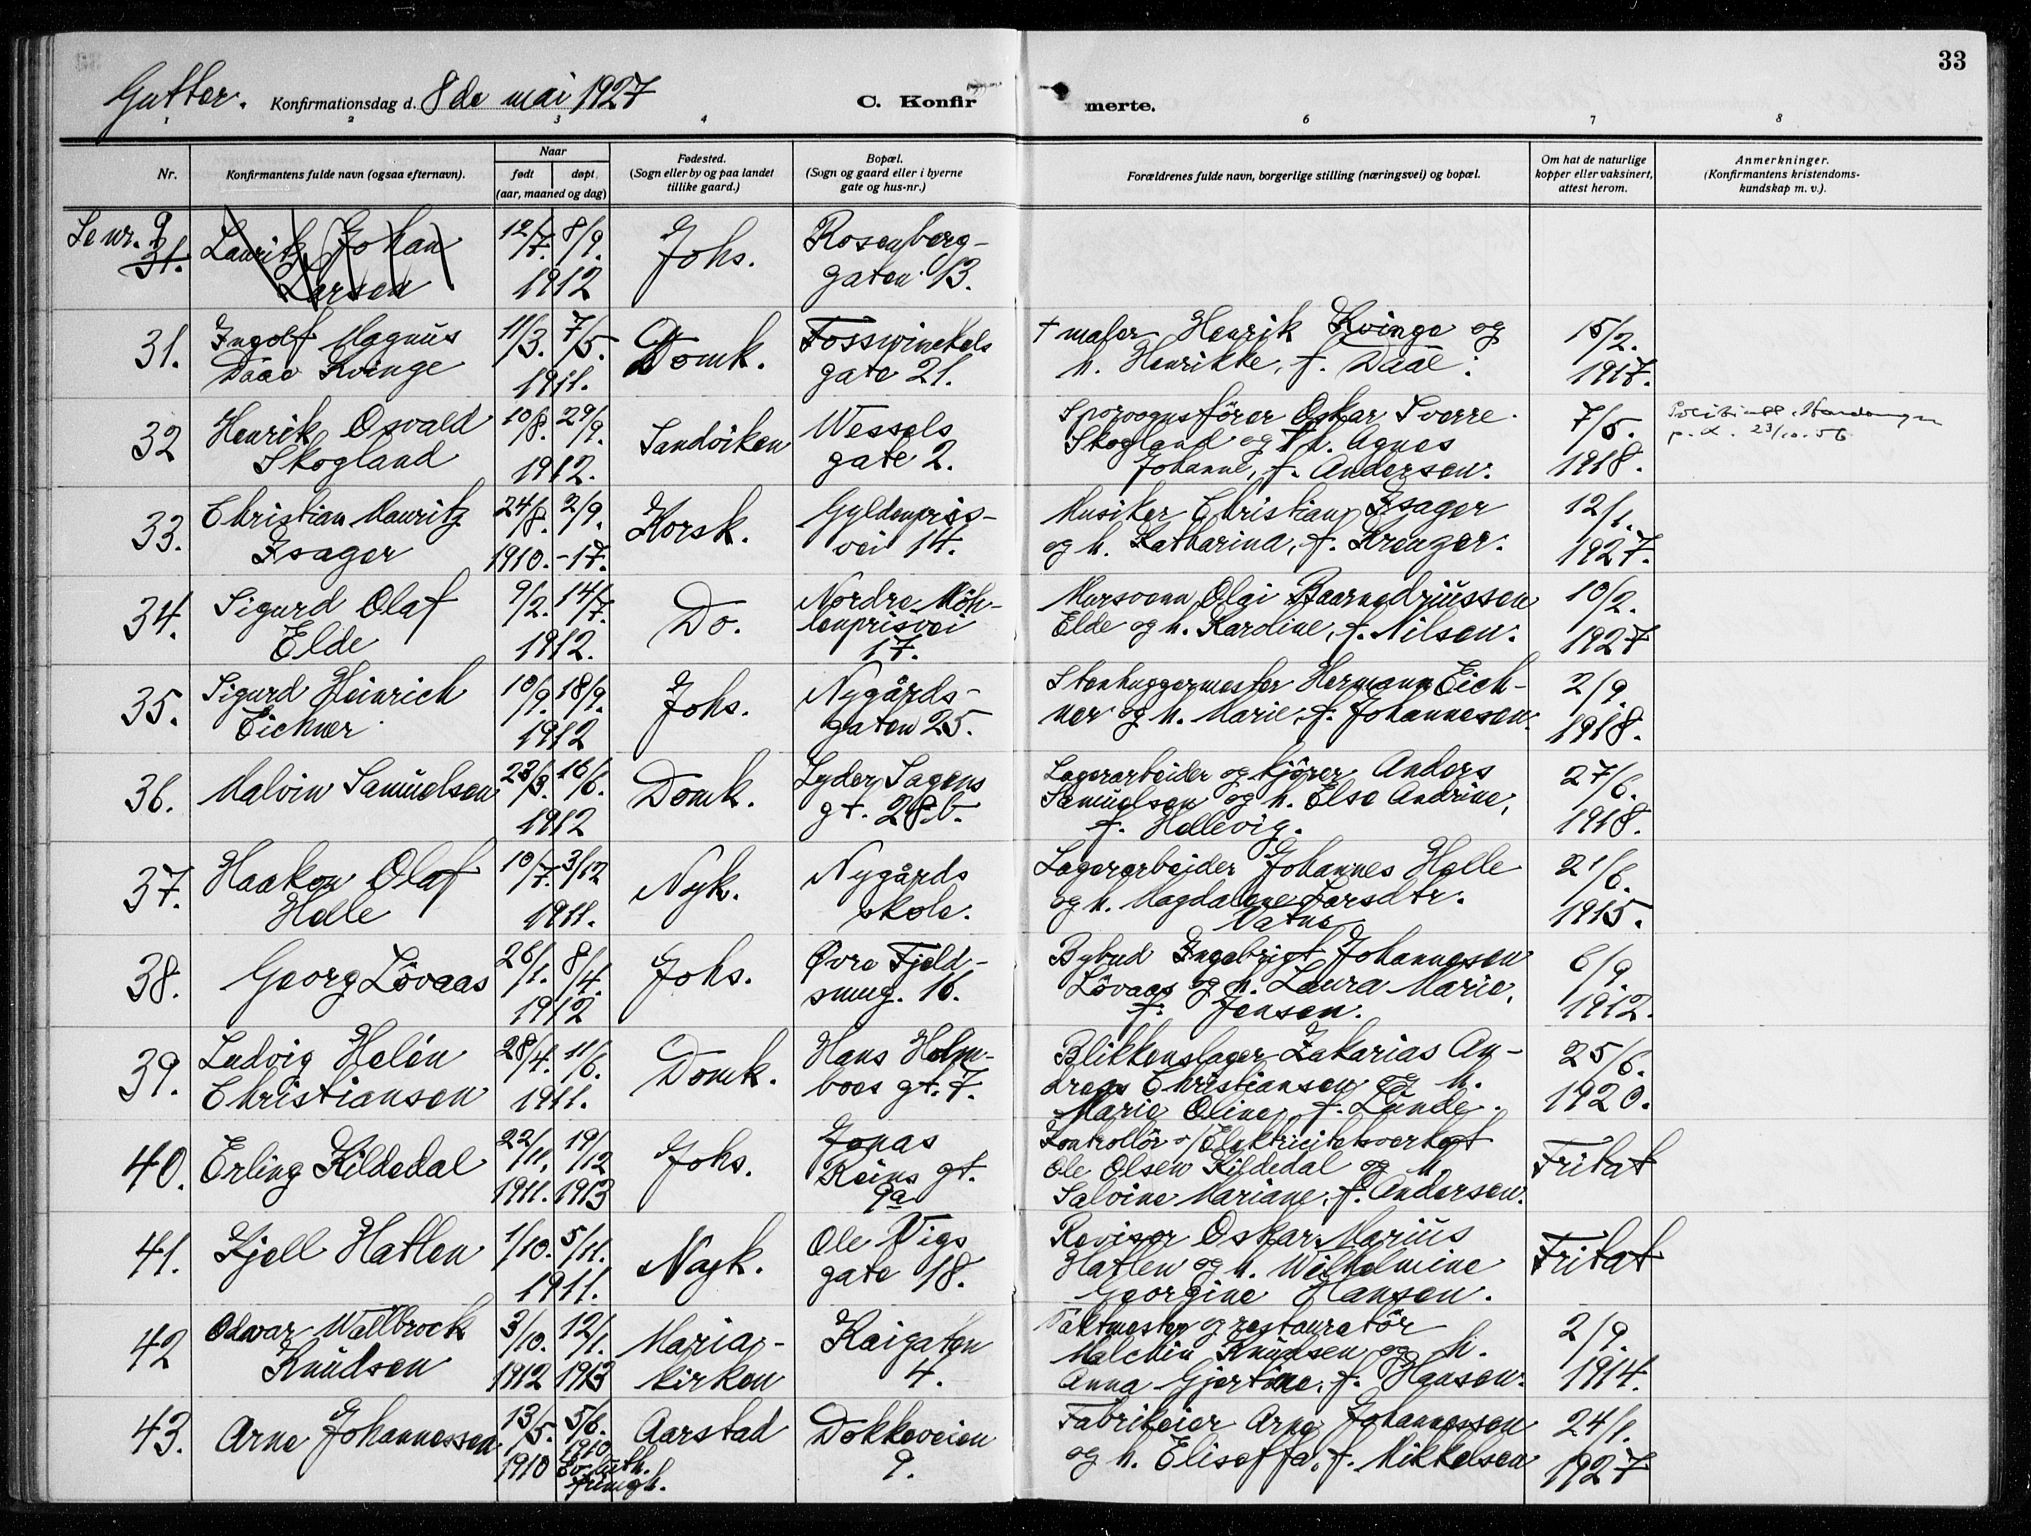 33
Gutter. Konfirmationsdag d. 8 de mai 1927
C. Konfir merte.
1 2 3 4 6 7 8
Nr.
Konfirmantens fulde navn (ogsaa efternavn).
Naar
født døpt
(aar, maaned og dag)
Fødested.
(Sogn eller by og paa landet
tillike gaard.)
Bopæl.
(Sogn og gaard eller i byerne
gate og hus-nr.)
Forældrenes fulde navn, borgerlige stilling (næringsvei) og bopæl.
Om hat de naturlige
kopper eller vaksinert,
attest herom.
Anmerkninger.
(Konfirmantens kristendoms-
kundskap m. v.).
Se nr. 9
31. Lauritz Johan 12/7. 8/9. Johs. Rosenberg-
Larsen 1912 gaten 13.
31. Ingolf Magnus 11/3. 7/5. Domk. Fosswinckels † maler Henrik Kvinge og 15/2.
Daae Kvinge 1911. gate 21. h. Henrikke, f. Daae. 1917.
32 Henrik Osvald 10/8. 29/9. Sandviken Wessels Sporvognsfører Oskar Sverre 7/5.
Skogland 1912. gate 2. Skogland og h. Agnes 1918. 23/10.56
Johanne, f. Andersen.
33. Christian Mauritz 24/8. 2/9. Korsk. Gyldenpris- Musiker Christian Isager 12/1.
Isager 1910. -17. vei 14. og h. Katharina, f. Krenger. 1927.
34. Sigurd Olaf 9/2. 14/7. Do. Nordre Møh- Mursvenn Olai Baarnedriussen 10/2.
Elde 1912. lenprisvei Elde og h. Karoline, f. Nilsen. 1927
17.
35. Sigurd Heinrich 10/9. 18/9. Johs. Nygårds- Stenhuggermester Hermann Eich- 2/9.
Eichner 1912 gaten 25. ner og h. Marie, f. Johannesen. 1918.
36. Malvin Samuelsen 23/3. 16/6. Domk. Lyder Sagens Lagerarbeider og kjører Anders 27/6.
1912 gt. 28.b. Samuelsen og h. Else Andrine, 1918.
f. Hellevig.
37. Haakon Olaf 10/7. 3/12 Nyk. Nygårds Lagerarbeider Johannes Helle 21/6.
Helle 1911. skole. og h. Magdalene Larsdtr. 1915.
Vatne
38. Georg Lövaas 26/1. 8/4. Johs. Øvre Fjeld- Bybud Ingebrigt Johannesen 6/9.
1912 smug. 16. Lövaas og h. Laura Marie, 1912.
f. Jensen.
39. Ludvig Helén 28/4. 11/6. Domk. Hans Holm- Blikkenslager Zakarias An- 25/6.
Christiansen 1911. boes gt. 7. dreas Christiansen og h. 1920.
Marie Oline, f. Lunde.
40. Erling Kildedal 22/11. 19/12 Johs. Jonas Kontrollör v/Elektricitetsverket Fritat
1911. 1913 Reins gt. Ole Olsen Kildedal og h.
9a Salvine Mariane, f. Andersen.
41. Kjell Hatlen 1/10. 5/11. Nyk. Ole Vigs Revisor Oskar Marius Fritat
1911. gate 18. Hatlen og h. Wilhelmine
Georgine Hansen.
42 Odvar Wallbrock 3/10. 12/1. Maria- Kaigaten Taktmester og restauratör 2/9.
Knudsen 1912 1913 kirken 4. Malchin Knudsen og h. 1914.
Anna Gjertine, f. Hansen.
43. Arne Johannessen 13/5. 5/6. Aarstad Dokkeveien Fabrikeier Arne Johannessen 24/1.
1910 1910 9. og h. Eliseffa, f. Mikkelsen 1927
Ev. luth.
frimgh.